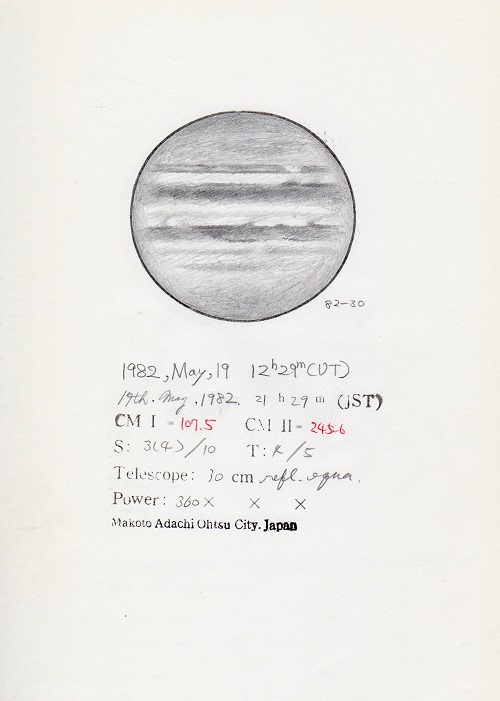 82-30
1982, May, 19 12h29m (UT)
19th. May, 1982. 21 h 29 m (JST)
CM I = 107.5 CM II = 245.6
S: 3(4)/10 T: 4/5
Telescope: 30 cm refl. equa.
Power: 360× × ×
Makoto Adachi Ohtsu City. Japan